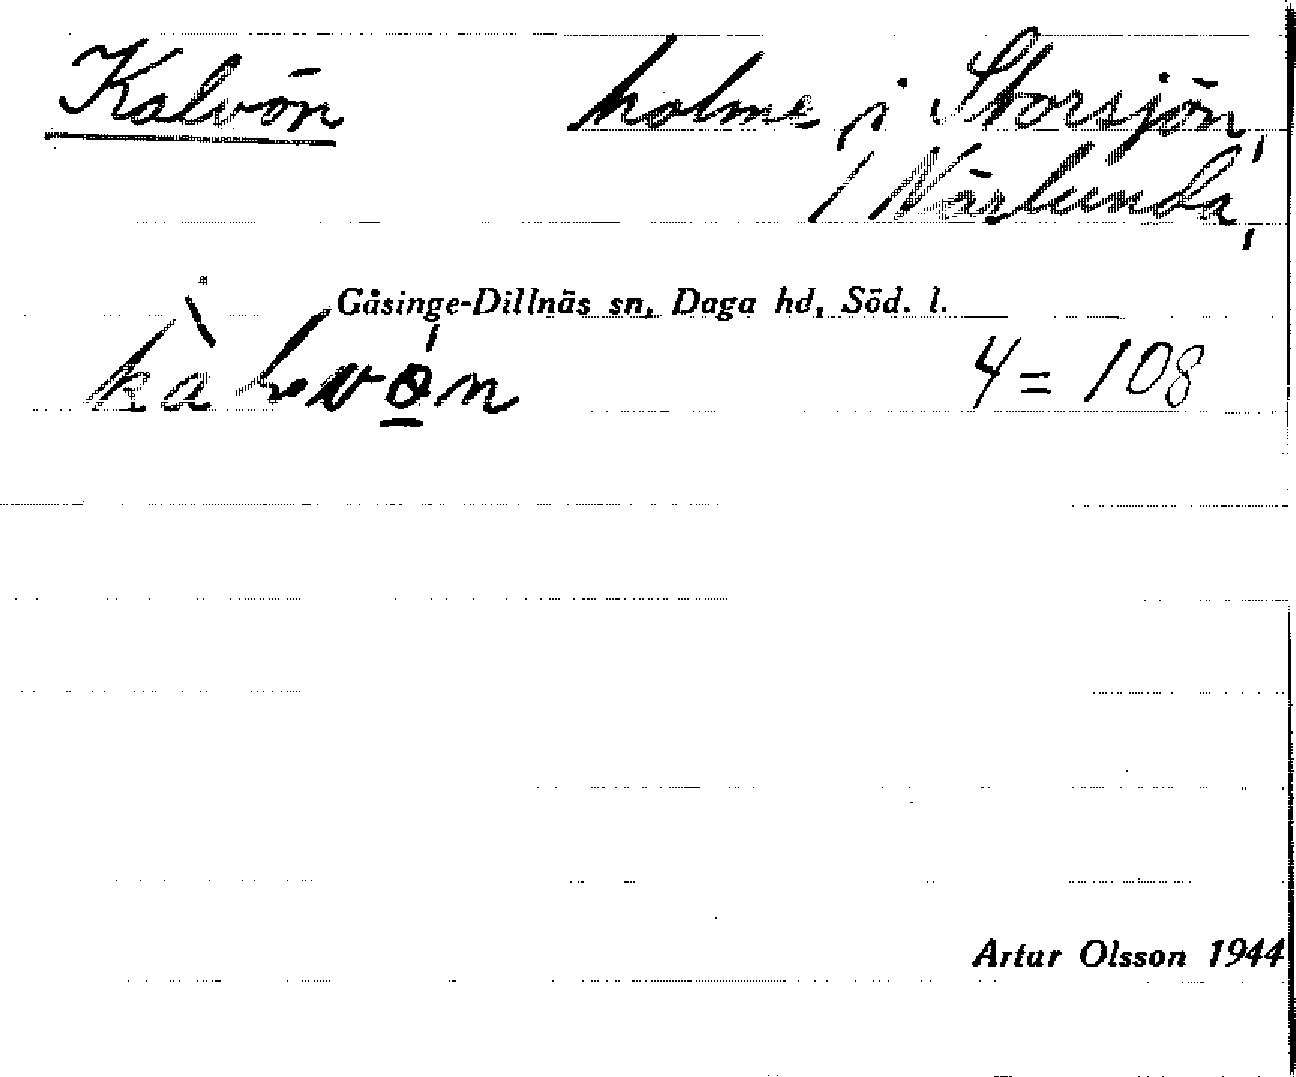 Kalvön holme, i Storsjön,
/ Närlunda,
Gåsinge-Dillnäs sn, Daga hd, Söd. l.
4 = 108
Artur Olsson 1944